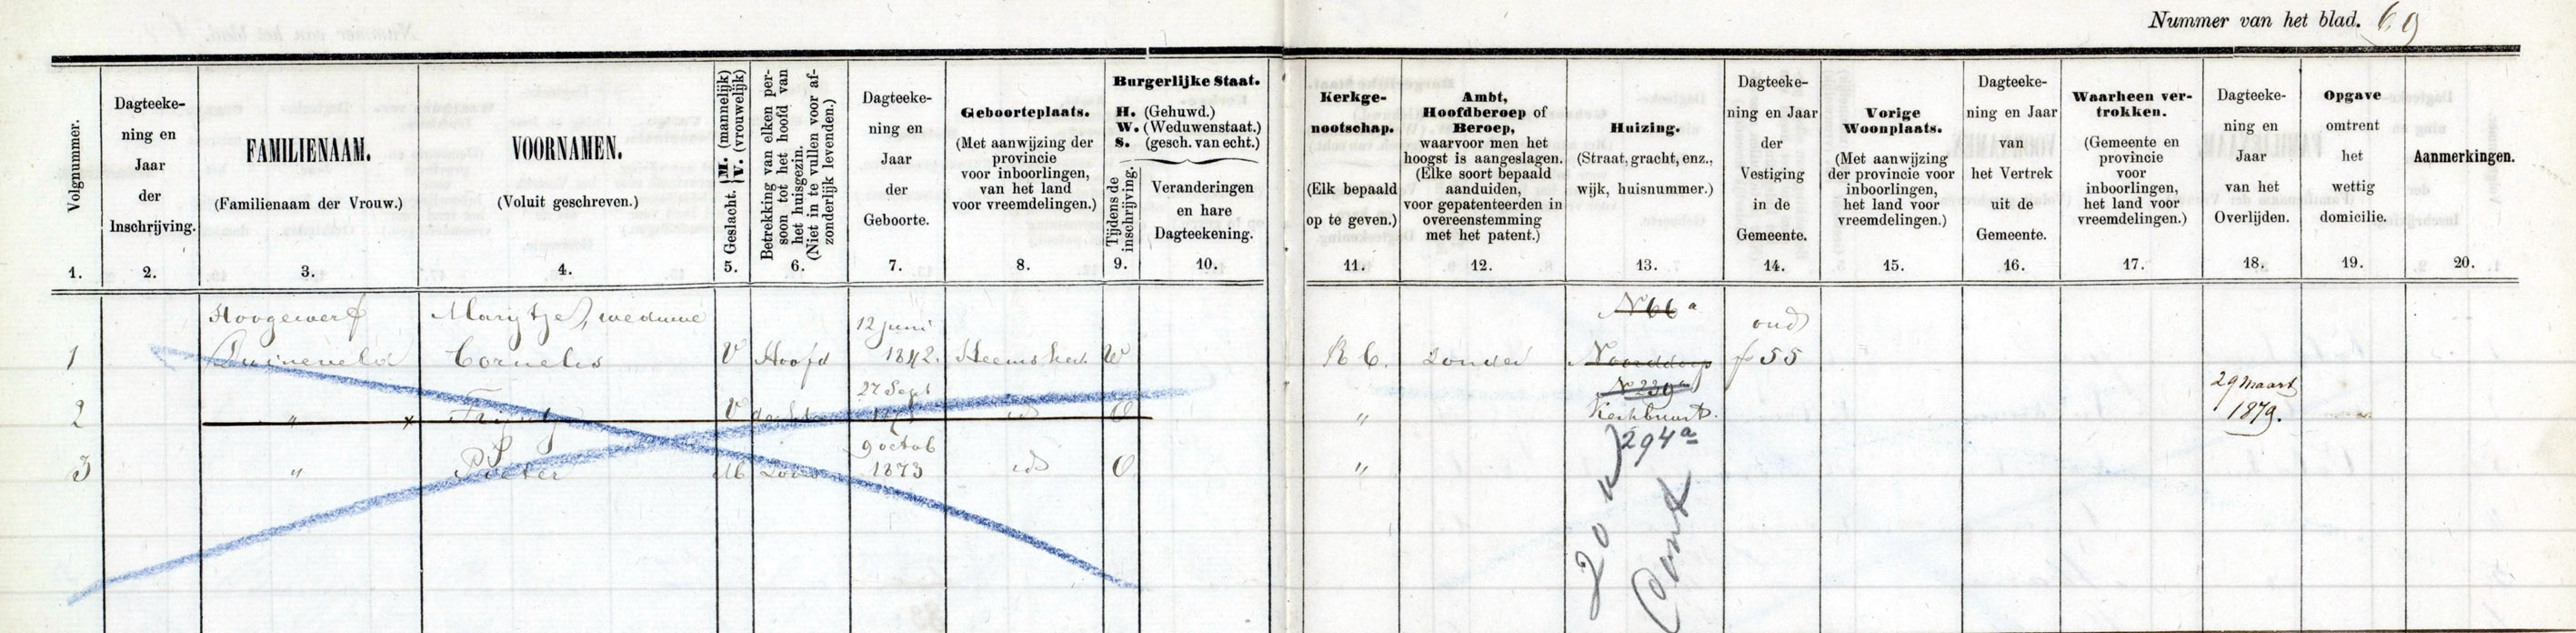 Nummer van het blad. 69
Volgnummer.
1.
Dagteeke-
ning en
Jaar
der
Inschrijving.
2.
FAMILIENAAM.
(Familienaam der Vrouw.)
3.
VOORNAMEN.
(Voluit geschreven.)
4.
Geslacht. M. (mannelijk) V. (vrouwelijk)
5.
Betrekking van elken per-
soon tot het hoofd van
het huisgezin.
(Niet in te vullen voor af-
zonderlijk levenden.)
6.
Dagteeke-
ning en
Jaar
der
Geboorte.
7.
Geboorteplaats.
(Met aanwijzing der
provincie
voor inboorlingen,
van het land
voor vreemdelingen.)
8.
Burgerlijke Staat.
H. (Gehuwd.)
W. (Weduwenstaat.)
S. (gesch. van echt.)
Tijdens de
inschrijving.
9.
Veranderingen
en hare
Dagteekening.
10.
Kerkge-
nootschap.
(Elk bepaald
op te geven.)
11.
Ambt,
Hoofdberoep of
Beroep,
waarvoor men het
hoogst is aangeslagen.
(Elke soort bepaald
aanduiden,
voor gepatenteerden in
overeenstemming
met het patent.)
12.
Huizing.
(Straat, gracht, enz.,
wijk, huisnummer.)
13.
Dagteeke-
ning en Jaar
der
Vestiging
in de
Gemeente.
14.
Vorige
Woonplaats.
(Met aanwijzing
der provincie voor
inboorlingen,
het land voor
vreemdelingen.)
15.
Dagteeke-
ning en Jaar
van
het Vertrek
uit de
Gemeente.
16.
Waarheen ver-
trokken.
(Gemeente en
provincie
voor
inboorlingen,
het land voor
vreemdelingen.)
17.
Dagteeke-
ning en
Jaar
van het
Overlijden.
18.
Opgave
omtrent
het
wettig
domicilie.
19.
Aanmerkingen.
20.
Hoogewerf Marijtje, weduwe 12 juni N 66 a oud
1 Duineveld Cornelis V Hoofd 1842. Heemskerk W R C. Zonder Noorddorp f 55
27 Sept N 239 a 29 Maart
2 " x Trijntje V dochter id O " Kerkbuurt. 1879.
9 octob 294 a
3 " Pieter M Zoon 1873 id O "
20
Cont